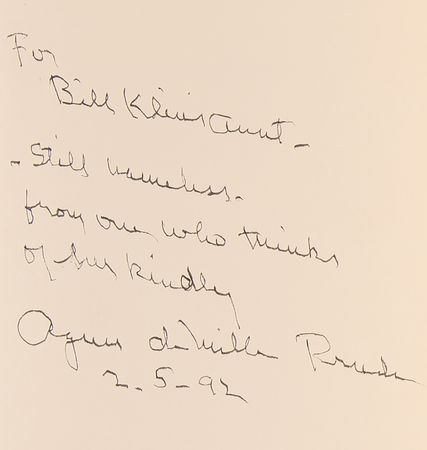 For
Bill Klein's aunt -
- Still nameless -
from one who thinks
of her kindly
Agnes deMille Prude
2-5-92